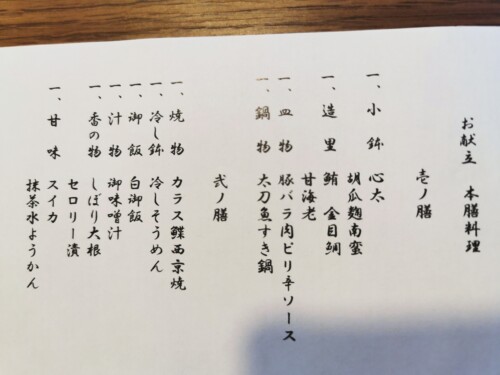 お献立 本膳料理
壱ノ膳
一、小鉢 心太
胡瓜麹南蛮
一、造里 鮪 金目鯛
甘海老
一、皿物 豚バラ肉ピリ辛ソース
一、鍋物 太刀魚すき鍋
弐ノ膳
一、焼物 カラス鰈西京焼
一、冷し鉢 冷しそうめん
一、御飯 白御飯
一、汁物 御味噌汁
一、香の物 しぼり大根
セロリー漬
一、甘味 スイカ
抹茶水ようかん